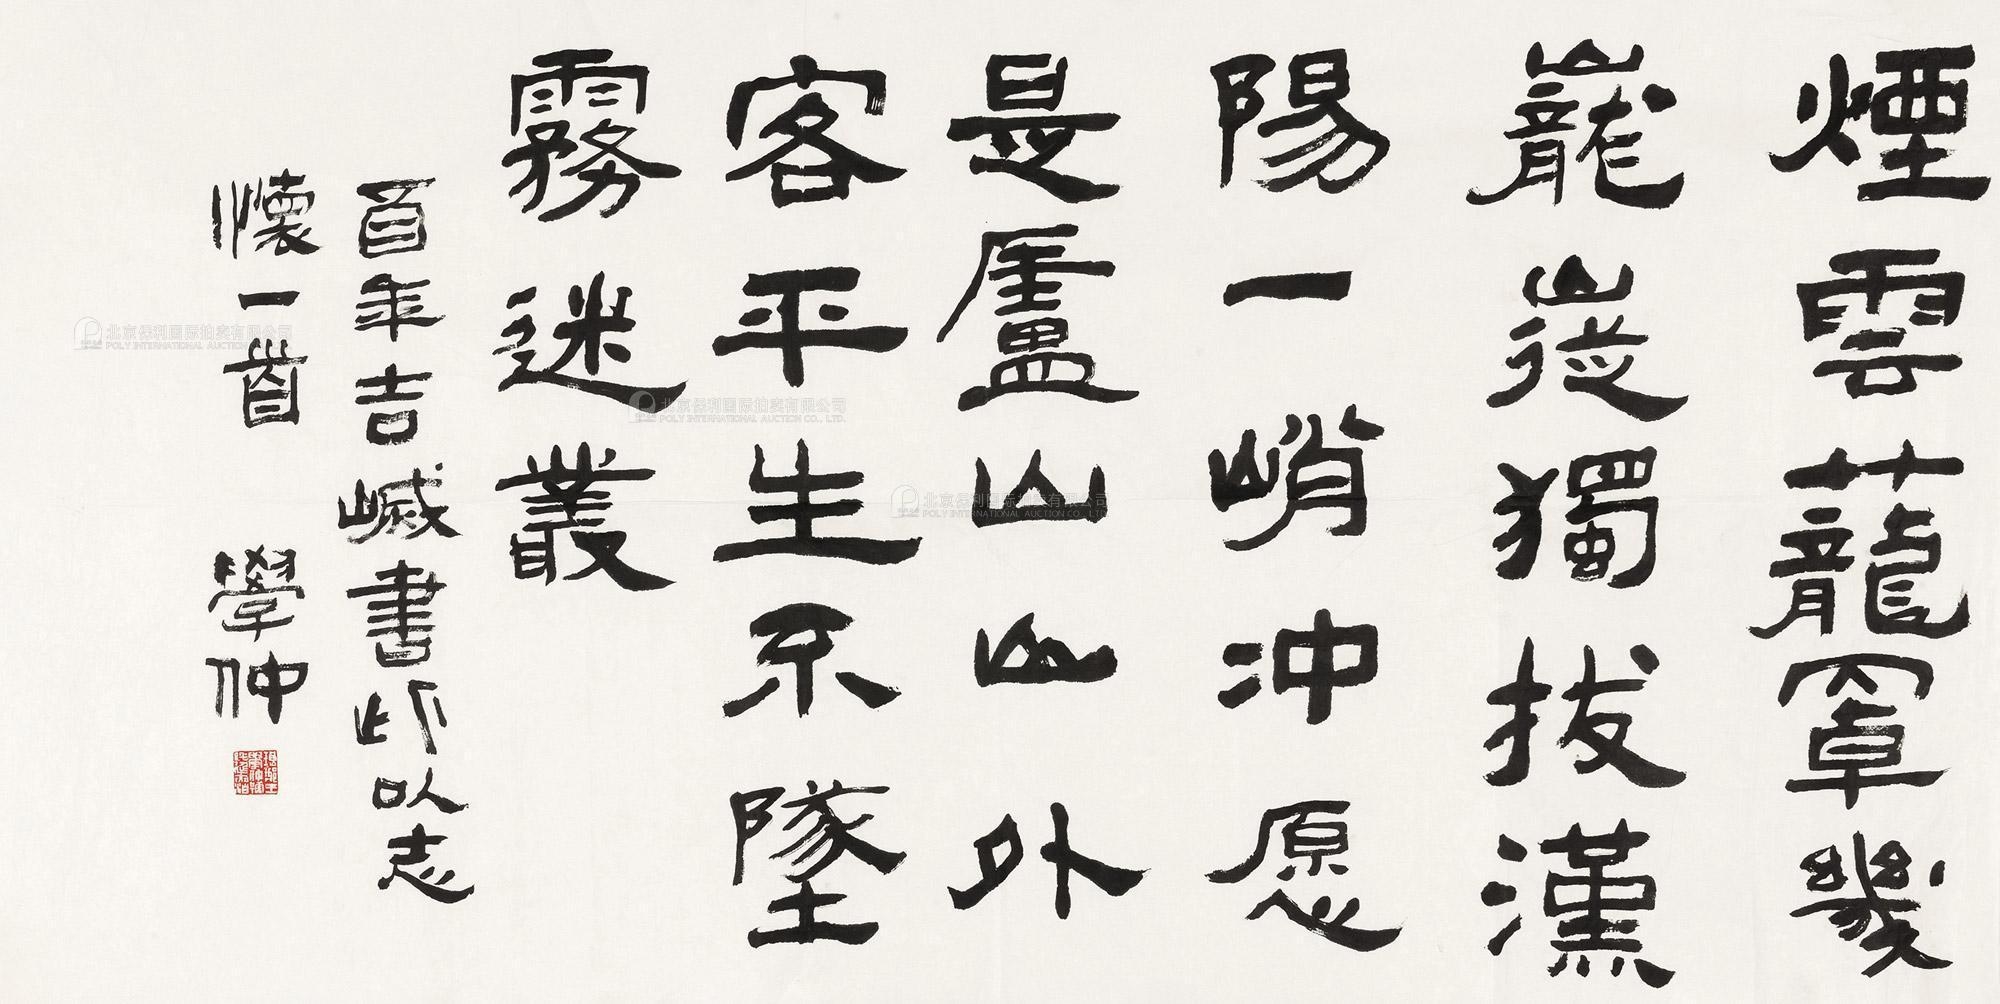 煙雲蘢罩幾
巃嵷獨拔漢
陽一峭冲愿
是廬山山外
客平生不墜
霧迷叢
百年吉緘書此以志
懷一首 學仲
北京保利国际拍卖有限公司
POLY INTERNATIONAL AUCTION CO., LTD.
北京保利国际拍卖有限公司
POLY INTERNATIONAL AUCTION CO., LTD.
北京保利国际拍卖有限公司
POLY INTERNATIONAL AUCTION CO., LTD.